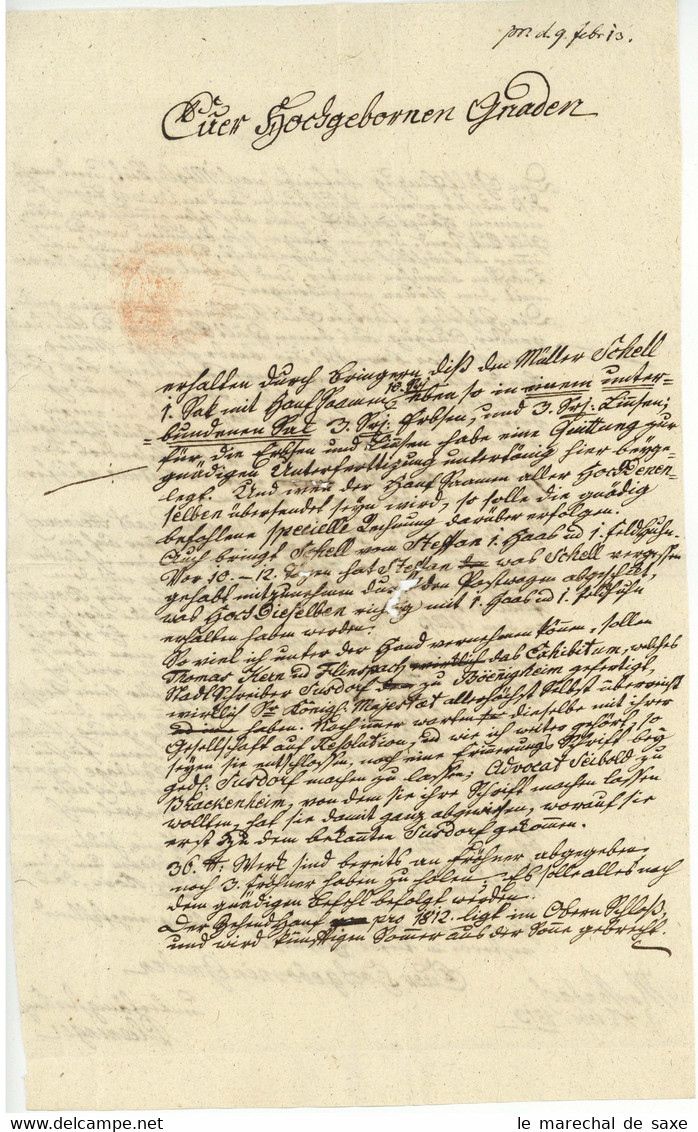 pr. d. 9. febr 13.
Euer Hochgebornen Gnaden
erhalten durch bringern diß den Müller Schell
1. Sak mit Hanf Saamen, eben so in einem unter-
bundenen Sak 3. Srj: Erbsen, und 3. Srj: Linsen;
für die Erbsen und Linsen habe eine Quittung zur
gnädigen Unterfertigung unterthänig hier beyge-
legt. Und wen der Hanf Saamen aller HochDenen-
selben übersendet seyn wird, so solle die gnädig
befohlene specielle Rechnung darüber erfolgen.
Auch bringt Schell vom Steffan 1. Haas ud 1. Feldhuhn.
Vor 10.-12. Tagen hat Stefan was Schell vergessen
gehabt mitzunehmen durch den Postwagen abgeschikt,
was HochDieselben richtig mit 1. Haas ud 1. Feldhuhn
erhalten haben werden.
So viel ich unter der Hand vernehmen können, sollen
Thomas Kern ud Flinspach das Exhibitum, welches
Stadtschreiber Jusdorf zu Bönnigheim gefertigt,
wirklich Sr. Königl. Majestät allerhöchst selbst überreicht
haben. Noch imer warten dieselbe mit ihrer
Gesellschaft auf Resolution, ud wie ich weiter gehört, so
seyen sie entschlossen, noch eine Erinerungs Schrift bey
ged: Jusdorf machen zu lassen; Advocat Seibold zu
Brackenheim, von dem sie ihre Schrift machen lassen
wollten, hat sie damit ganz abgewiesen, worauf sie
erst zu dem bekannten Jusdorf gekommen.
36. ℔: Werk sind bereits an Fröhner abgegeben,
noch 3. Fröhner haben zu holen. Es solle alles nach
dem gnädigen Befehl befolgt werden.
Der Zehend Hanf pro 1812. ligt im Obern Schloß,
und wird künftigen Sommer aus der Sone gebrecht.
le marechal de saxe